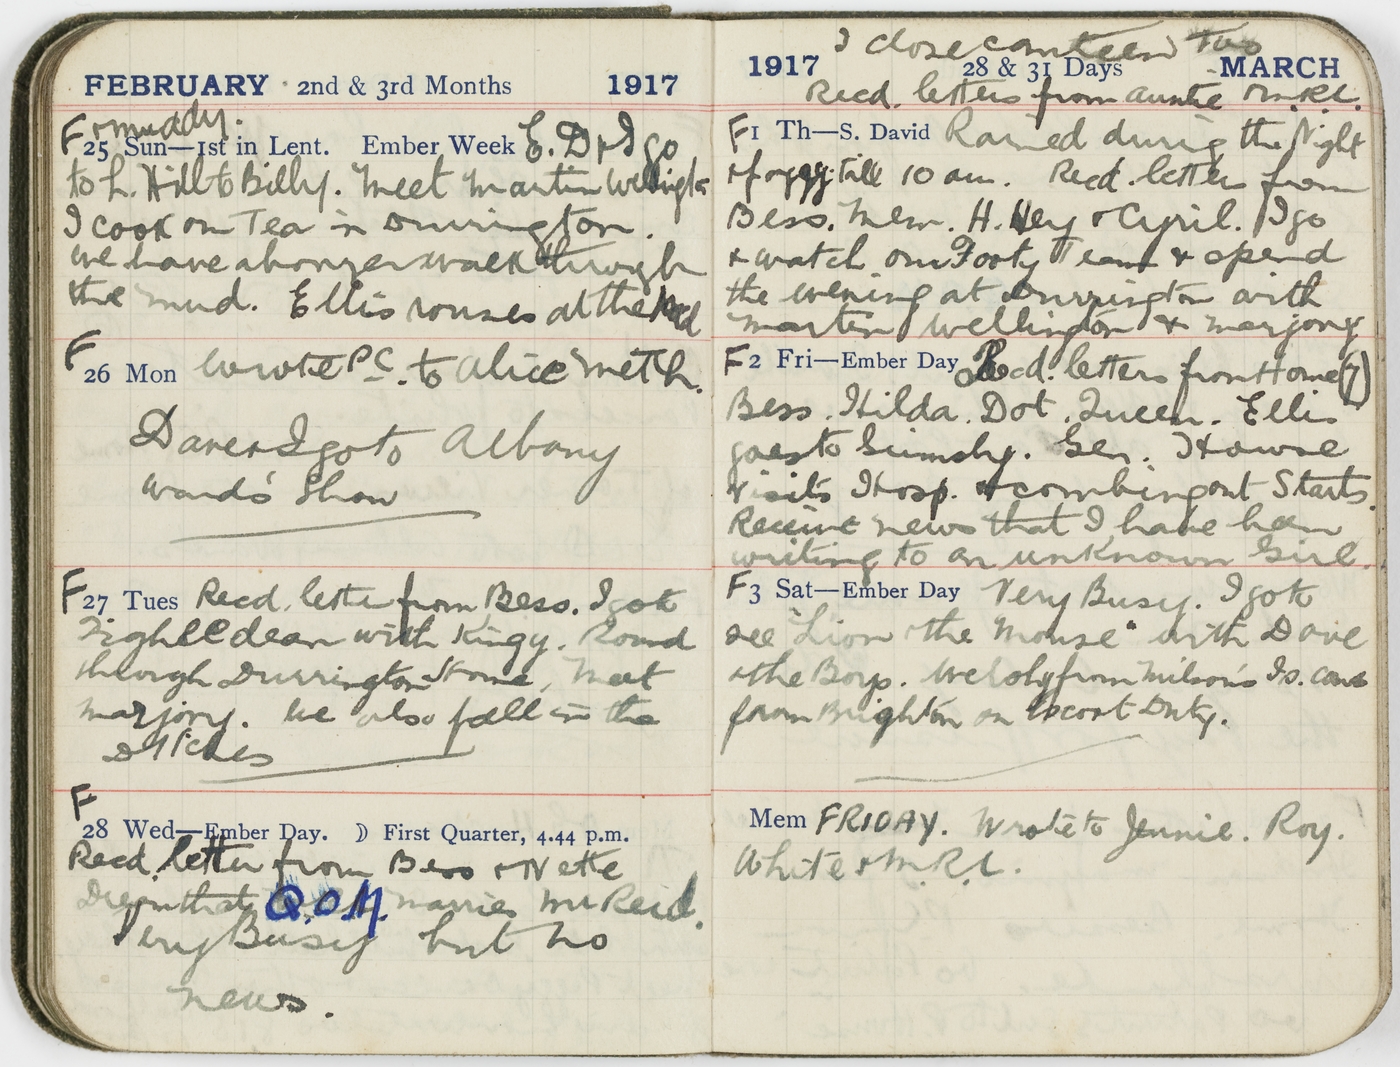 FEBRUARY 2nd & 3rd Months 1917
F
25 Sun—1st in Lent. Ember Week E. D & I go
to L. Hill to Billy. Meet Martin Wellingt
I cook our Tea in Durrington.
We have a longer walk through
the mud. Ellis rouses at the mud
F
26 Mon Wrote P.C. to Alice Meth.
Dave & I go to Albany
Ward's Show
F
27 Tues Recd. letter from Bess. I go to
Fighlldean with Kingy. Round
through Durrington Home, Meet
Marjory. We also fall in the
Ditches
F
28 Wed—Ember Day. ☽ First Quarter, 4.44 p.m.
Recd. letter from Bess & Nette
that Q.O.M. marries Mr Reid.
Very Busy but no
news.
I close canteen
1917 28 & 31 Days MARCH
Recd. letters from Auntie
F 1 Th—S. David Rained during the Night
& foggy till 10 am. Recd. letters from
Bess. Mem. H. Hey & Cyril. I go
& watch our Footy Team & spend
the evening at Durrington with
Martin Wellington & Marjory
F 2 Fri—Ember Day Recd. letters from Home (7)
Bess. Hilda. Dot. Queen. Ellis
goes to Grimsby. Gen. Howse
visits Hosp. & combing out Starts.
Receive news that I have been
writing to an unknown Girl.
F 3 Sat—Ember Day Very Busy. I go to
see "Lion & the Mouse" with Dave
& the Boys. from Milson's Is. came
from Brighton on Escort Duty.
Mem FRIDAY. Wrote to Jennie. Roy.
White & M.R.L.